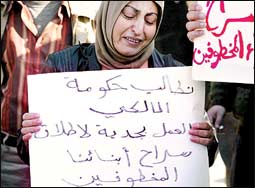 نطالب حكومة
المالكي
العمل بجدية لاطلاق
سراح أبنائنا
المخطوفين
سراح
المخطوفين